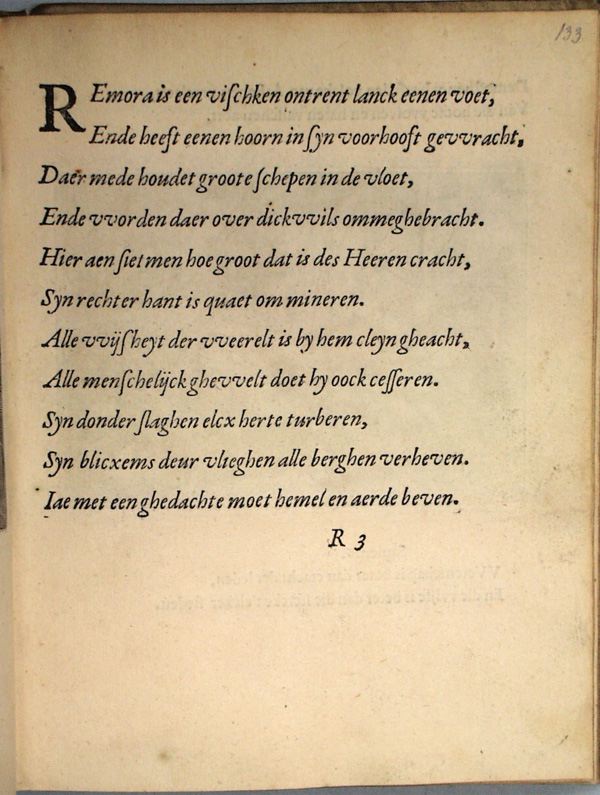 133
REmora is een viſchken ontrent lanck eenen voet,
Ende heeft eenen hoorn in ſyn voorhooft gevvracht,
Daer mede houdet groote ſchepen in de vloet,
Ende vvorden daer over dickvvils ommeghebracht.
Hier aen ſiet men hoe groot dat is des Heeren cracht,
Syn rechter hant is quaet om mineren.
Alle vvijſheyt der vveerelt is by hem cleyn gheacht,
Alle menſchelijck ghevvelt doet hy oock ceſſeren.
Syn donder ſlaghen elcx herte turberen,
Syn blicxems deur vlieghen alle berghen verheven.
Iae met een ghedachte moet hemel en aerde beven.
R 3